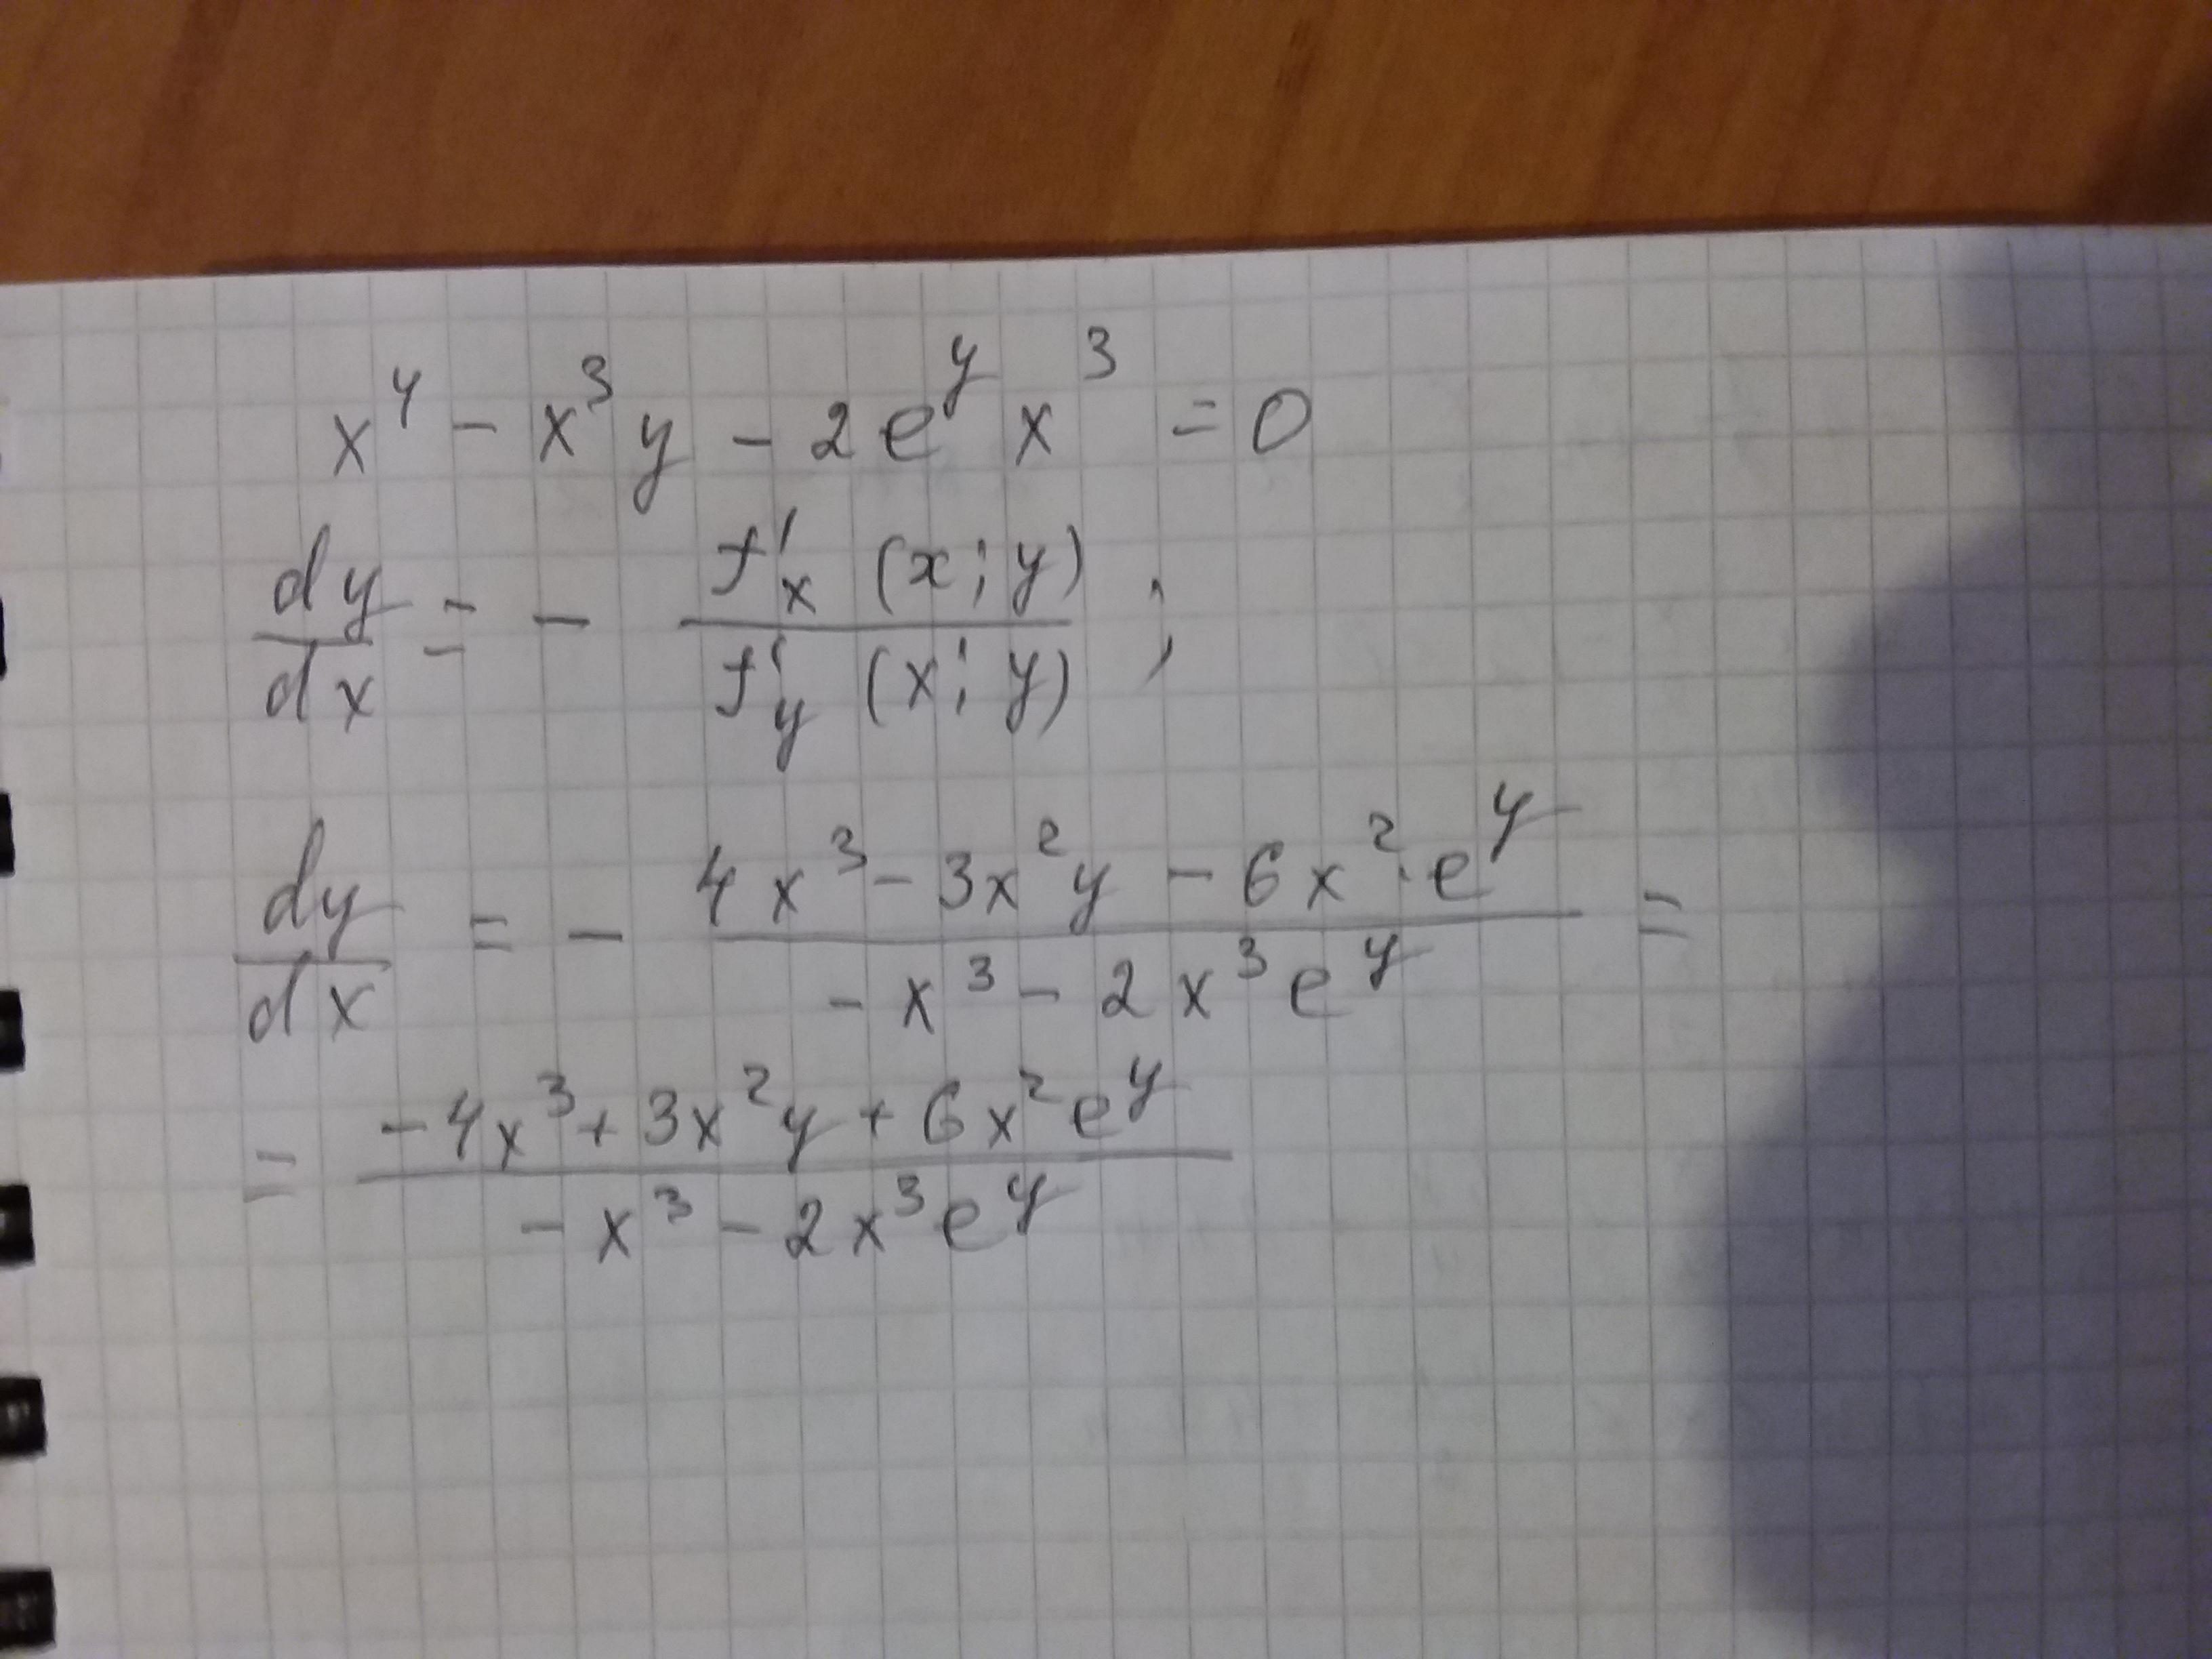 x⁴ - x³y - 2e^y x³ = 0
dy/dx = - f'ₓ (x; y) / f'_y (x; y) ;
dy/dx = - (4x³ - 3x²y - 6x²·e^y) / (-x³ - 2x³e^y) =
= (-4x³ + 3x²y + 6x²e^y) / (-x³ - 2x³e^y)